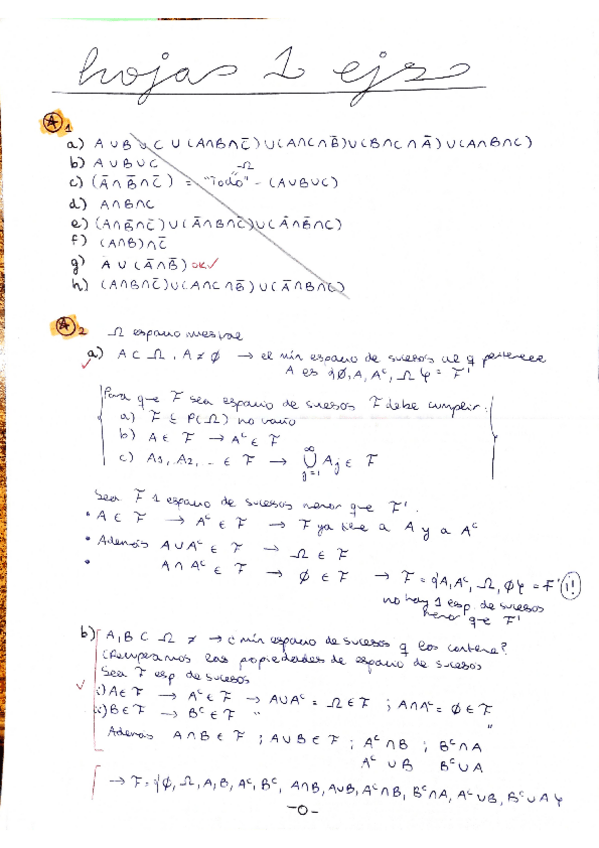 hojas 1 ejs
1
a) A∪B∪C∪(A∩B∩C̄)∪(A∩C∩B̄)∪(B∩C∩Ā)∪(A∩B∩C)
b) A∪B∪C
c) (Ā∩B̄∩C̄) = "Todo" - (A∪B∪C)
Ω
d) A∩B∩C
e) (A∩B̄∩C̄)∪(Ā∩B∩C̄)∪(Ā∩B̄∩C)
f) (A∩B)∩C̄
g) A∪(Ā∩B̄) OK✓
h) (A∩B∩C̄)∪(A∩C∩B̄)∪(Ā∩B∩C)
2 Ω espacio muestral
a) A⊂Ω, A≠∅ → el mín espacio de sucesos al q pertenece
A es {∅, A, Aᶜ, Ω} = F'
Para que F sea espacio de sucesos F debe cumplir:
a) F ⊆ P(Ω) no vacío
b) A∈F → Aᶜ∈F
c) A₁, A₂, … ∈ F → ∞∪j=1 Aj ∈ F
Sea F 1 espacio de sucesos menor que F'.
• A∈F → Aᶜ∈F → F ya tiene a A y a Aᶜ
• Además A∪Aᶜ ∈ F → Ω∈F
• A∩Aᶜ ∈ F → ∅∈F → F = {A, Aᶜ, Ω, ∅} = F' !!
no hay 1 esp. de sucesos
menor que F'
b) A, B ⊂ Ω ≠ → ¿mín espacio de sucesos q los contiene?
Recuperamos las propiedades de espacio de sucesos
Sea F esp de sucesos
i) A∈F → Aᶜ∈F → A∪Aᶜ = Ω∈F ; A∩Aᶜ = ∅∈F
ii) B∈F → Bᶜ∈F " "
Además A∩B∈F ; A∪B∈F ; Aᶜ∩B ; Bᶜ∩A
Aᶜ∪B Bᶜ∪A
→ F = {∅, Ω, A, B, Aᶜ, Bᶜ, A∩B, A∪B, Aᶜ∩B, Bᶜ∩A, Aᶜ∪B, Bᶜ∪A}
-0-